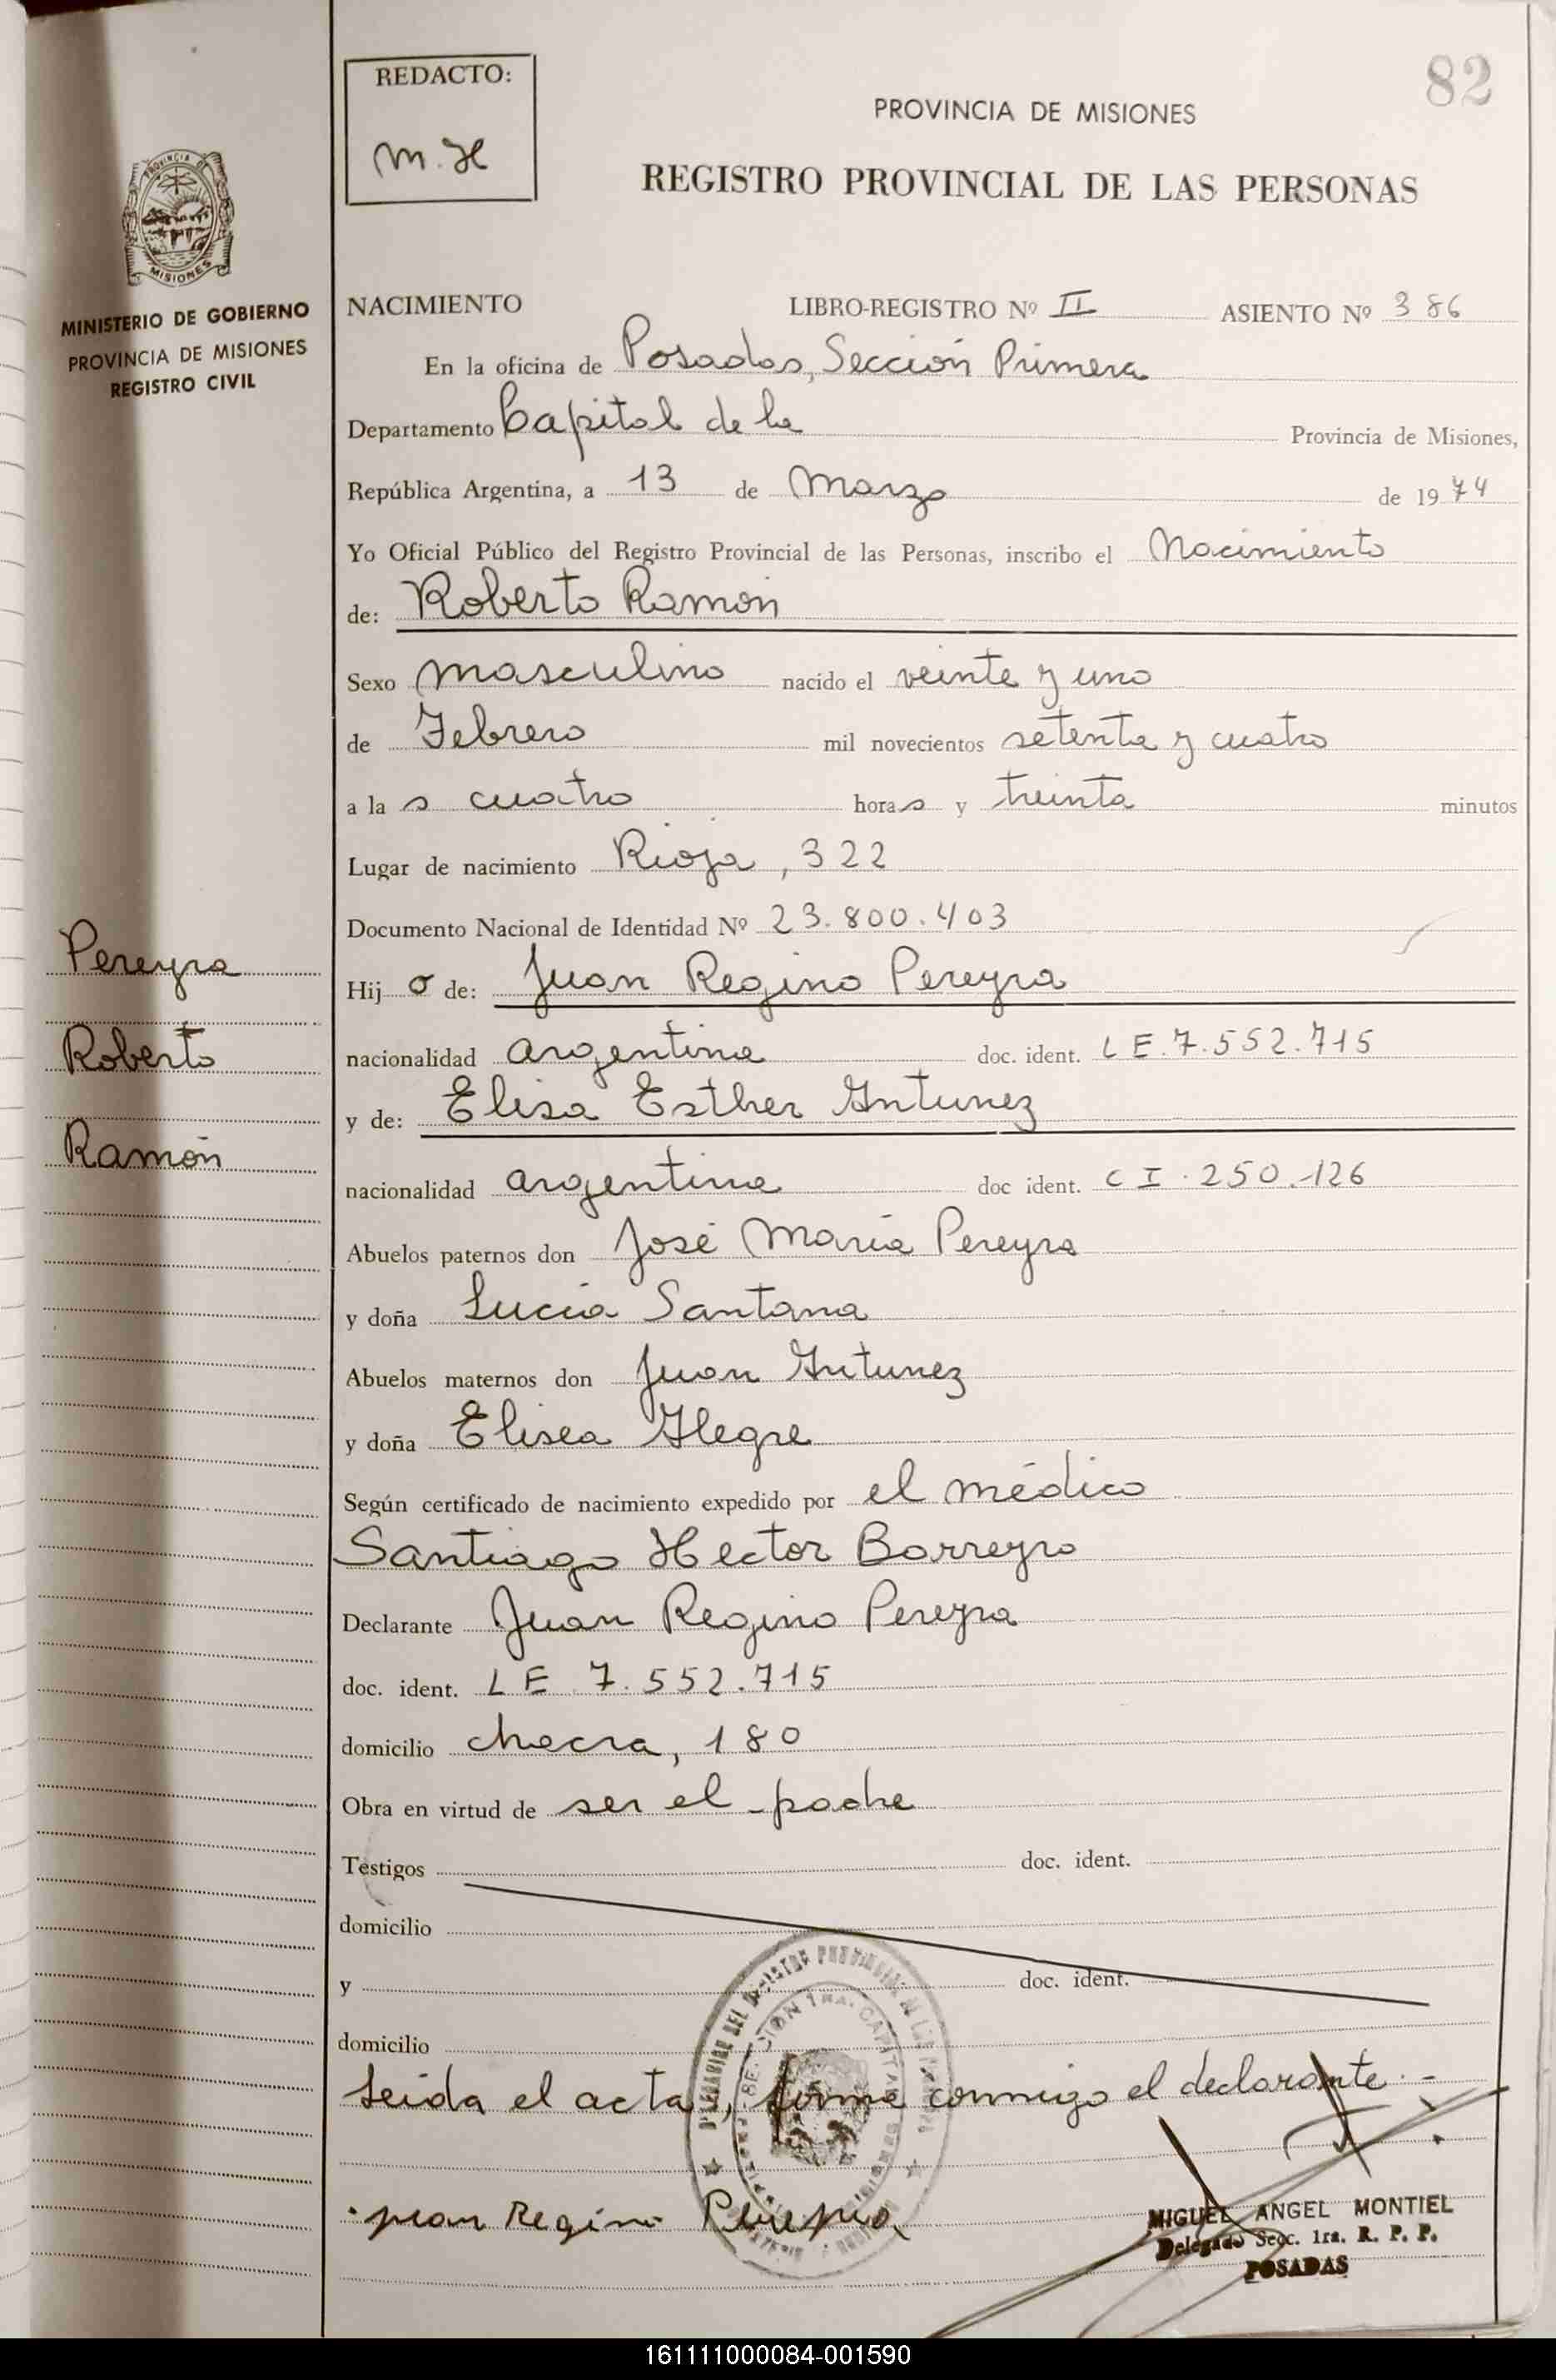 82
REDACTO:
M. H
PROVINCIA DE MISIONES
REGISTRO PROVINCIAL DE LAS PERSONAS
PROVINCIA DE
MISIONES
MINISTERIO DE GOBIERNO
PROVINCIA DE MISIONES
REGISTRO CIVIL
NACIMIENTO LIBRO-REGISTRO Nº II ASIENTO Nº 386
En la oficina de Posadas, Sección Primera
Departamento Capital de la Provincia de Misiones,
República Argentina, a 13 de Marzo de 1974
Yo Oficial Público del Registro Provincial de las Personas, inscribo el Nacimiento
de: Roberto Ramón
Sexo masculino nacido el veinte y uno
de Febrero mil novecientos setenta y cuatro
a las cuatro horas y treinta minutos
Lugar de nacimiento Rioja, 322
Documento Nacional de Identidad Nº 23.800.403
Pereyra
Hijo de: Juan Regino Pereyra
Roberto
nacionalidad argentina doc. ident. L E. 7.552.715
y de: Elisa Esther Antunez
Ramón
nacionalidad argentina doc ident. C I. 250.126
Abuelos paternos don José María Pereyra
y doña Lucía Santana
Abuelos maternos don Juan Antunez
y doña Elisea Alegre
Según certificado de nacimiento expedido por el médico
Santiago Hector Barreyro
Declarante Juan Regino Pereyra
doc. ident. L E 7.552.715
domicilio chacra, 180
Obra en virtud de ser el padre
Testigos doc. ident.
domicilio
y doc. ident.
domicilio
Leida el acta, firma conmigo el declarante.-
Juan Regino Pereyra
MIGUEL ANGEL MONTIEL
Delegado Secc. 1ra. R. P. P.
POSADAS
161111000084-001590